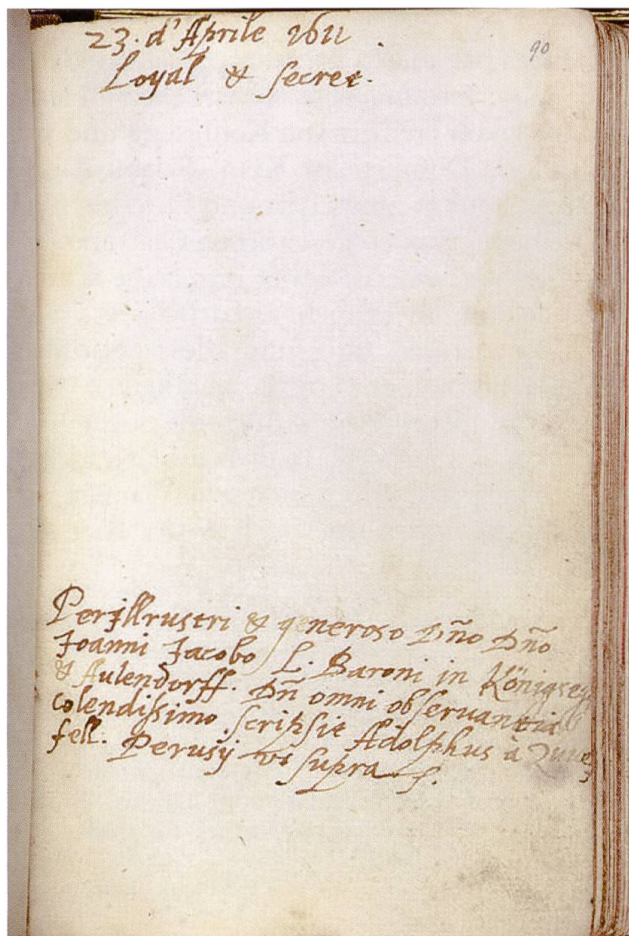 23. d'Aprile 1611.
90
Loyal & secret.
Perillrustri & generoso Dño Dño
Joanni Jacobo L. Baroni in Königseg
& Aulendorff. Dñ omni observantia
colendissimo scripsit Adolphus à
fell. Perusij vt supra